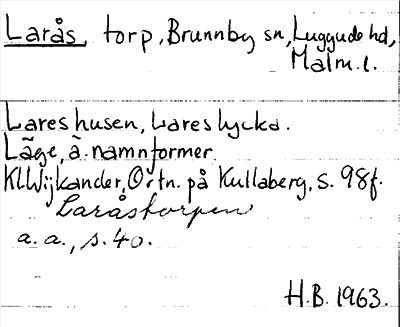 Larås, torp, Brunnby sn, Luggude hd,
Malm. l.
Lareshusen, Lareslycka.
Läge, ä. namnformer
KLWijkander, Ortn. på Kullaberg, s. 98f.
Laråstorpen
a. a., s. 40.
H.B. 1963.